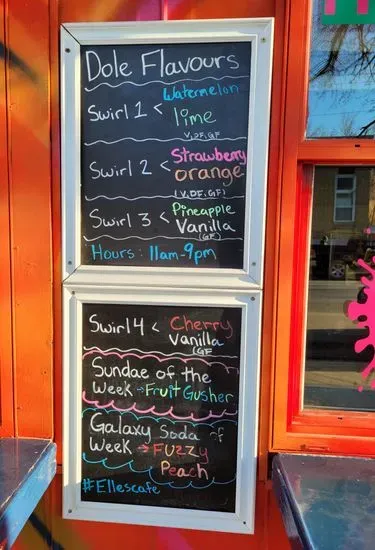 Dole Flavours
Watermelon
Swirl 1 < lime
V,DF,GF
Swirl 2 < Strawberry
orange
(V,DF,GF)
Swirl 3 < Pineapple
Vanilla
(GF)
Hours: 11am-9pm
Swirl 4 < Cherry
Vanilla
(GF
Sundae of the
Week → Fruit Gusher
Galaxy Soda of
Week → Fuzzy
Peach
#Ellescafe